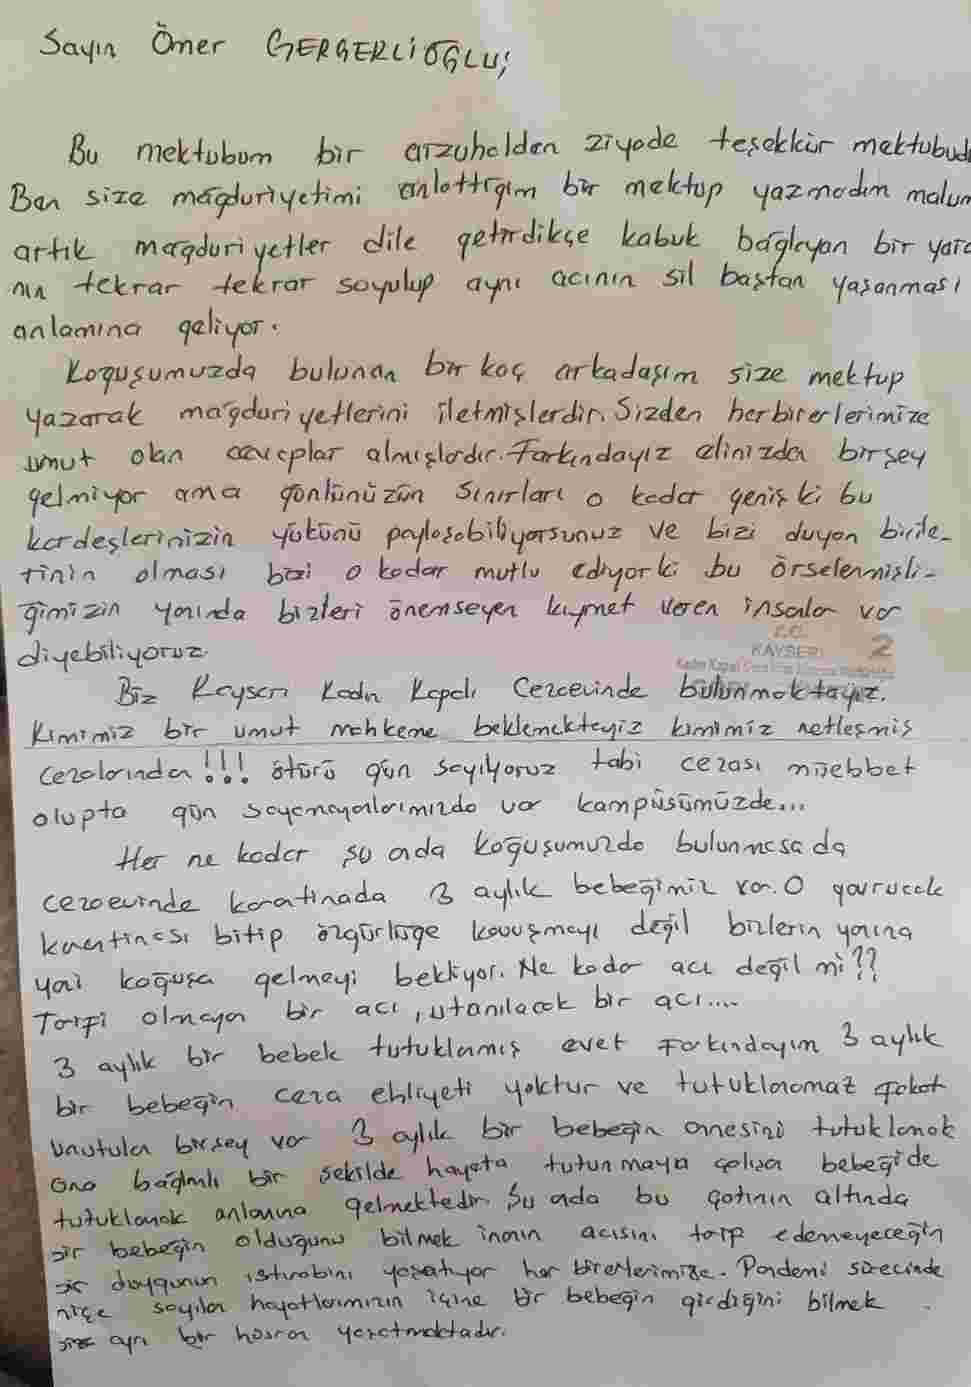 Sayın Ömer GERGERLİOĞLU;
Bu mektubum bir arzuhalden ziyade teşekkür mektubud
Ben size mağduriyetimi anlattığım bir mektup yazmadım malum
artık mağduriyetler dile getirdikçe kabuk bağlayan bir yara
nın tekrar tekrar soyulup aynı acının sil baştan yaşanması
anlamına geliyor.
Koğuşumuzda bulunan bir kaç arkadaşım size mektup
yazarak mağduriyetlerini iletmişlerdir. Sizden herbirerlerimize
umut olan cevaplar almışlardır. Farkındayız elinizden birşey
gelmiyor ama gönlünüzün sınırları o kadar geniş ki bu
kardeşlerinizin yükünü paylaşabiliyorsunuz ve bizi duyan birile-
rinin olması bizi o kadar mutlu ediyor ki bu örselenmişli-
ğimizin yanında bizleri önemseyen kıymet veren insanlar var
diyebiliyoruz.
T.C.
KAYSERİ
2
Biz Kayseri Kadın Kapalı Cezaevinde bulunmaktayız.
Kimimiz bir umut mahkeme beklemekteyiz kimimiz netleşmiş
cezalarından!!! ötürü gün sayıyoruz tabi cezası müebbet
olupta gün sayamayanlarımızda var kampüsümüzde...
Her ne kadar şu anda koğuşumuzda bulunmasada
cezaevinde karantinada 3 aylık bebeğimiz var. O yavrucak
karantinası bitip özgürlüğe kavuşmayı değil bizlerin yanına
yani koğuşa gelmeyi bekliyor. Ne kadar acı değil mi??
Tarifi olmayan bir acı, utanılacak bir acı....
3 aylık bir bebek tutuklanmış evet farkındayım 3 aylık
bir bebeğin ceza ehliyeti yoktur ve tutuklanamaz fakat
unutulan birşey var 3 aylık bir bebeğin annesini tutuklamak
ona bağımlı bir şekilde hayata tutunmaya çalışan bebeğide
tutuklamak anlamına gelmektedir. Şu anda bu çatının altında
bir bebeğin olduğunu bilmek inanın acısını tarif edemeyeceğim
bir duygunun ıstırabını yaşatıyor her birerlerimize. Pandemi sürecinde
hiçe sayılan hayatlarımızın içine bir bebeğin girdiğini bilmek
ayrı bir hüsran yaratmaktadır.